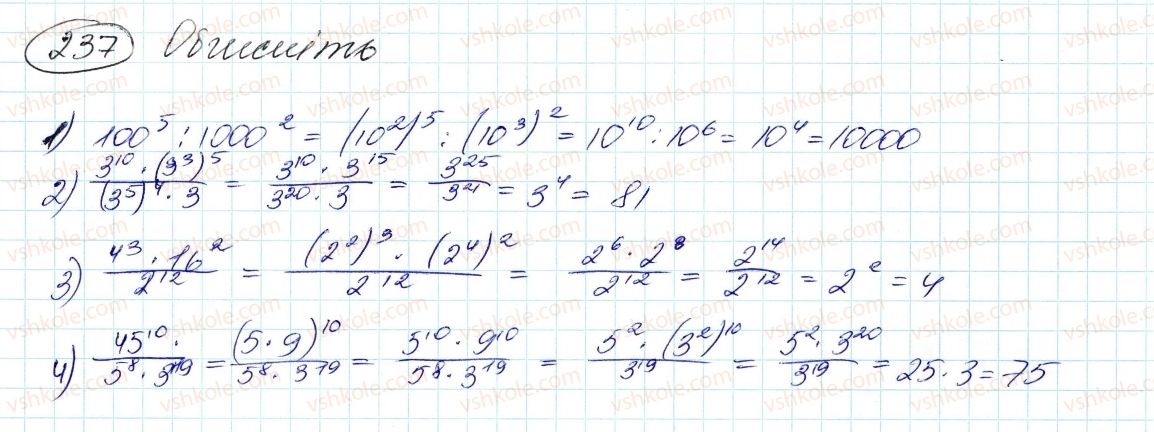 237 Обчисліть
1) 100^5 : 1000^2 = (10^2)^5 : (10^3)^2 = 10^10 : 10^6 = 10^4 = 10000
2) (3^10 · (3^3)^5) / ((3^5)^4 · 3) = (3^10 · 3^15) / (3^20 · 3) = 3^25 / 3^21 = 3^4 = 81
3) (4^3 · 16^2) / 2^12 = ((2^2)^3 · (2^4)^2) / 2^12 = (2^6 · 2^8) / 2^12 = 2^14 / 2^12 = 2^2 = 4
4) 45^10 · / (5^8 · 3^19) = (5 · 9)^10 / (5^8 · 3^19) = (5^10 · 9^10) / (5^8 · 3^19) = (5^2 · (3^2)^10) / 3^19 = (5^2 · 3^20) / 3^19 = 25 · 3 = 75
vshkole.com